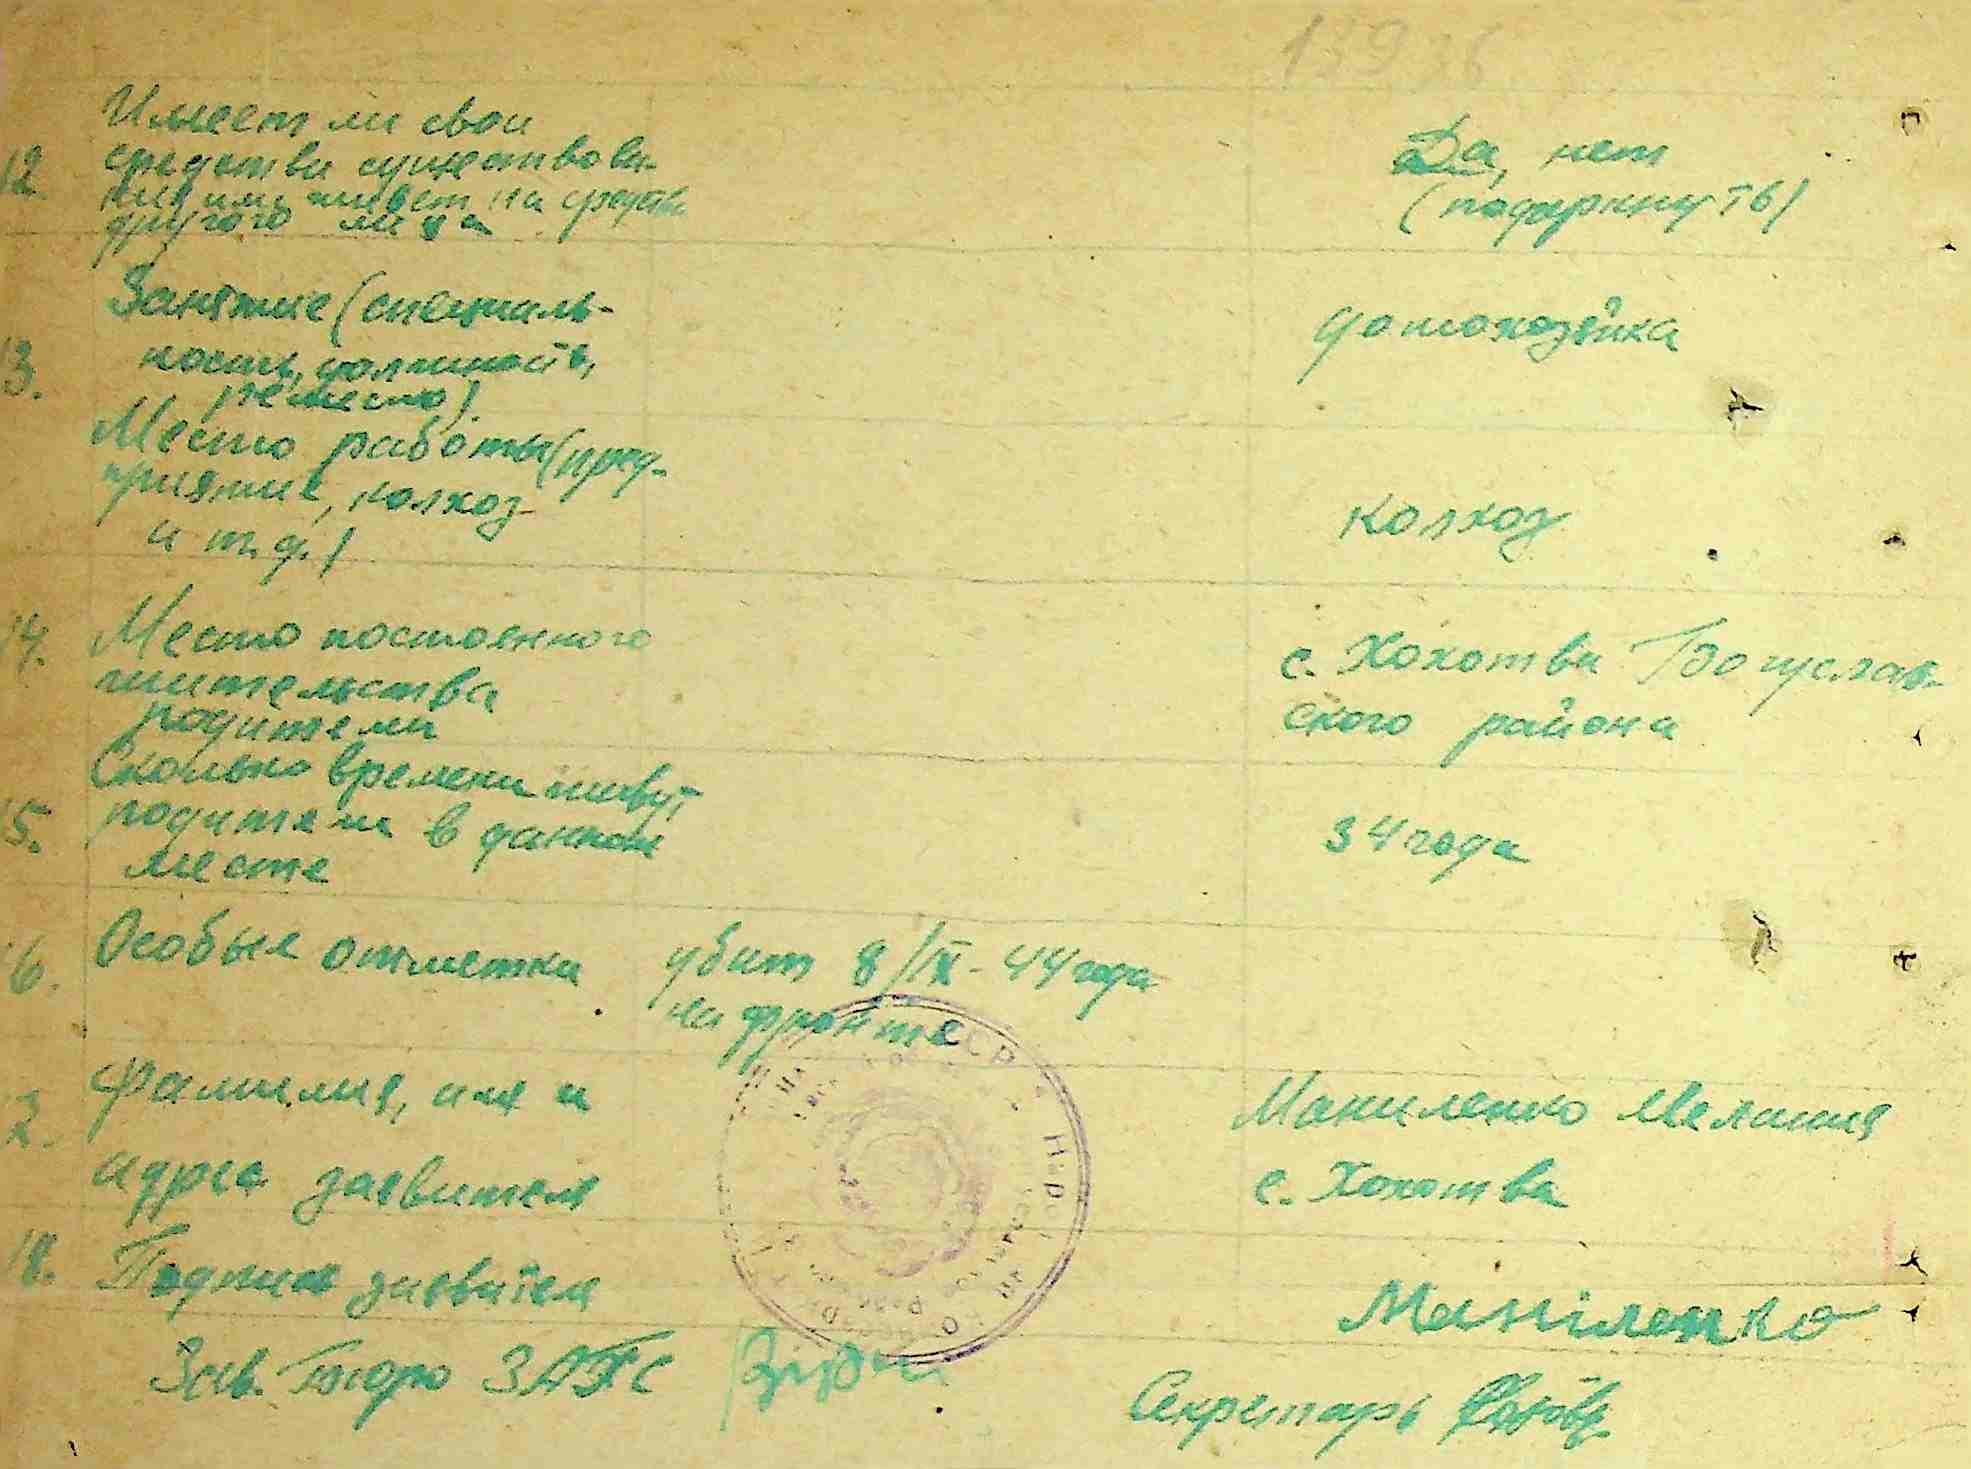 13936
12. Имеет ли свои
средства существова-
ния или живет на средства
другого лица
Да, нет
(подчеркнуть)
13. Занятие (специаль-
ность, должность,
ремесло)
домохозяйка
Место работы (пред-
приятие, колхоз
и т.д.)
колхоз
14. Место постоянного
жительства
родители
с. Хохотва Богуслав-
ского района
15. Сколько времени живут
родители в данном
месте
34 года
16. Особые отметки
убит 8/IX-44 года
на фронте
Фамилия, имя и
адрес заявителя
Маниленко Мелания
с. Хохотва
18. Подпись заявителя
Маніленко
Зав. Бюро ЗАГС
Секретарь